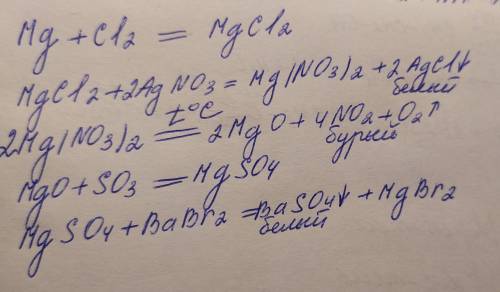 Mg + Cl2 = MgCl2
MgCl2 + 2AgNO3 = Mg(NO3)2 + 2AgCl↓
белый
t°C
2Mg(NO3)2 = 2MgO + 4NO2 + O2↑
бурый
MgO + SO3 = MgSO4
MgSO4 + BaBr2 = BaSO4↓ + MgBr2
белый